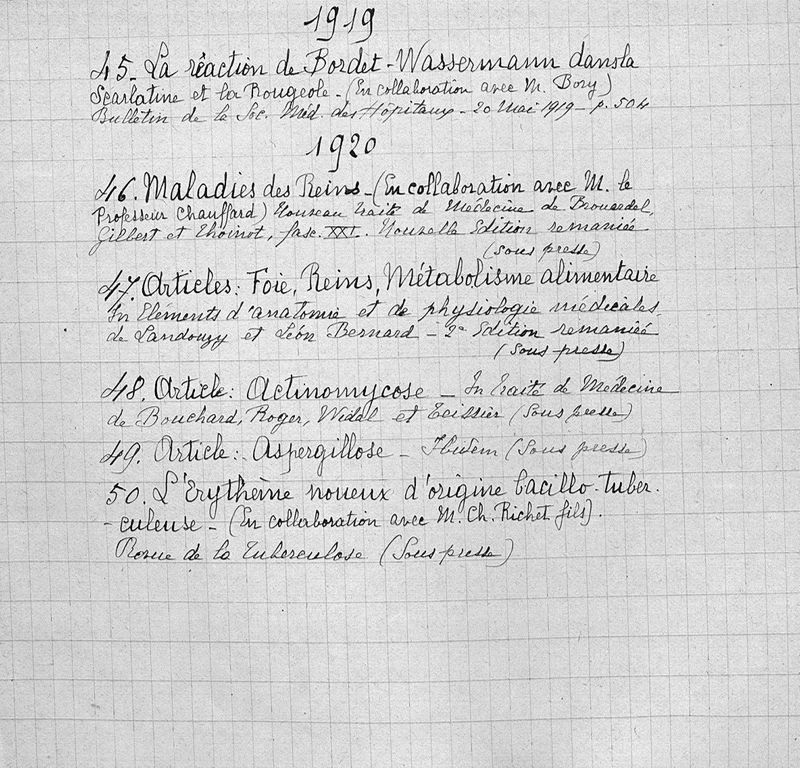 1919
45_ La réaction de Bordet-Wassermann dans la
Scarlatine et la Rougeole - (En collaboration avec M. Bory)
Bulletin de la Soc. Méd. des Hôpitaux - 20 Mai 1919 - p. 504
1920
46. Maladies des Reins - (En collaboration avec M. le
Professeur Chauffard) Nouveau Traité de Médecine de Brouardel,
Gilbert et Thoinot, fasc. XXI. Nouvelle Edition remaniée
(Sous presse)
47. Articles: Foie, Reins, Métabolisme alimentaire
In Eléments d'anatomie et de physiologie médicales
de Landouzy et Léon Bernard - 2e Edition remaniée
(Sous presse)
48. Article: Actinomycose - In Traité de Médecine
de Bouchard, Roger, Widal et Teissier (Sous presse)
49. Article: Aspergillose - Ibidem (Sous presse)
50. L'Erythème noueux d'origine bacillo-tuber-
-culeuse - (En collaboration avec M. Ch. Richet fils).
Revue de la Tuberculose (Sous presse)